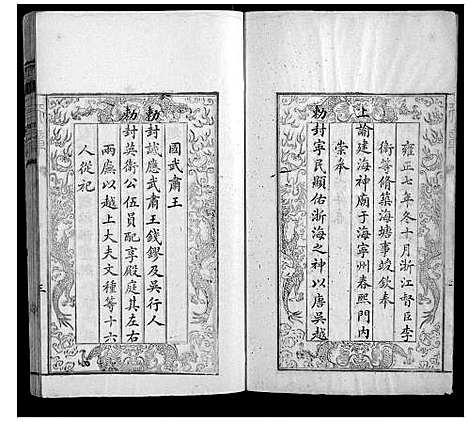 雍正七年冬十月浙江督臣李
衛等脩築海塘事竣欽奉
上諭建海神廟于海寧州春熙門内
崇奉
勅封寧民顯佑浙海之神以唐吳越
國武肅王
勅封誠應武肅王錢鏐及吳行人
勅封英衛公伍員配享殿庭其左右
兩廡以越上大夫文種等十六
人從祀